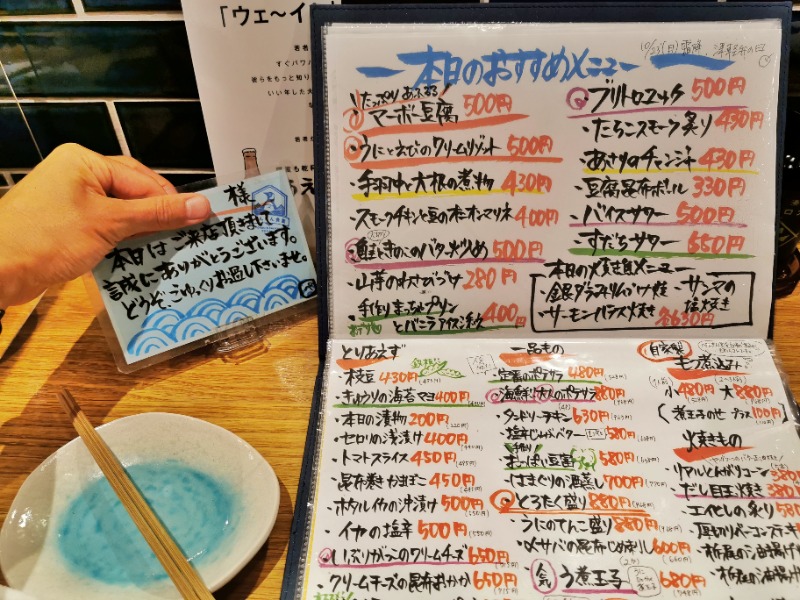 「ウェ〜イ
様
本日はご来店頂きまして
誠にありがとうございます。
どうぞごゆっくりお過し下さいませ。
本日のおすすめメニュー
10/23(日)
たっぷりあふれる!
マーボー豆腐 500円
・うにとえびのクリームリゾット 500円
・手羽中と大根の煮物 430円
・スモークチキンと豆の 400円
・鮭ときのこのバター炒め 500円
・山芋のわさびづけ 280円
・手作りまっちゃプリン
とバニラアイス添え 400円
500円
・たらこスモーク炙り 430円
・あさりのチャンジャ 430円
・豆腐昆布ボール 330円
・バイスサワー 500円
・すだちサワー 550円
本日の焼き魚メニュー
・銀ダラみりんづけ焼
・サンマの塩焼き
・サーモンハラス焼き
各630円
とりあえず
・枝豆 430円
・きゅうりの海苔マヨ 400円
・本日の漬物 200円
・セロリの浅漬け 400円
・トマトスライス 450円
・昆布巻かまぼこ 450円
・ホタルイカの沖漬 500円
・イカの塩辛 500円
・いぶりがっこのクリームチーズ 650円
・クリームチーズの昆布おかか 650円
一品もの
・定番のポテサラ 480円
・海鮮 大人のポテサラ 880円
・タンドリーチキン 630円
・塩辛じゃがバター 580円
・おっぱい豆腐 580円
・はまぐりの酒蒸し 700円
・とろたく盛り 880円
・うにのてんこ盛り 880円
・〆サバの昆布じめ炙り 600円
う煮玉子 680円
自家製
もつ煮込み
小 480円 大 880円
煮玉子のせ プラス 100円
焼きもの
・リアルとんがりコーン
・だし目玉焼き 580
・エイヒレの炙り 580
・厚切りベーコンステーキ
・栃尾の油揚げ
・栃尾の油揚げ